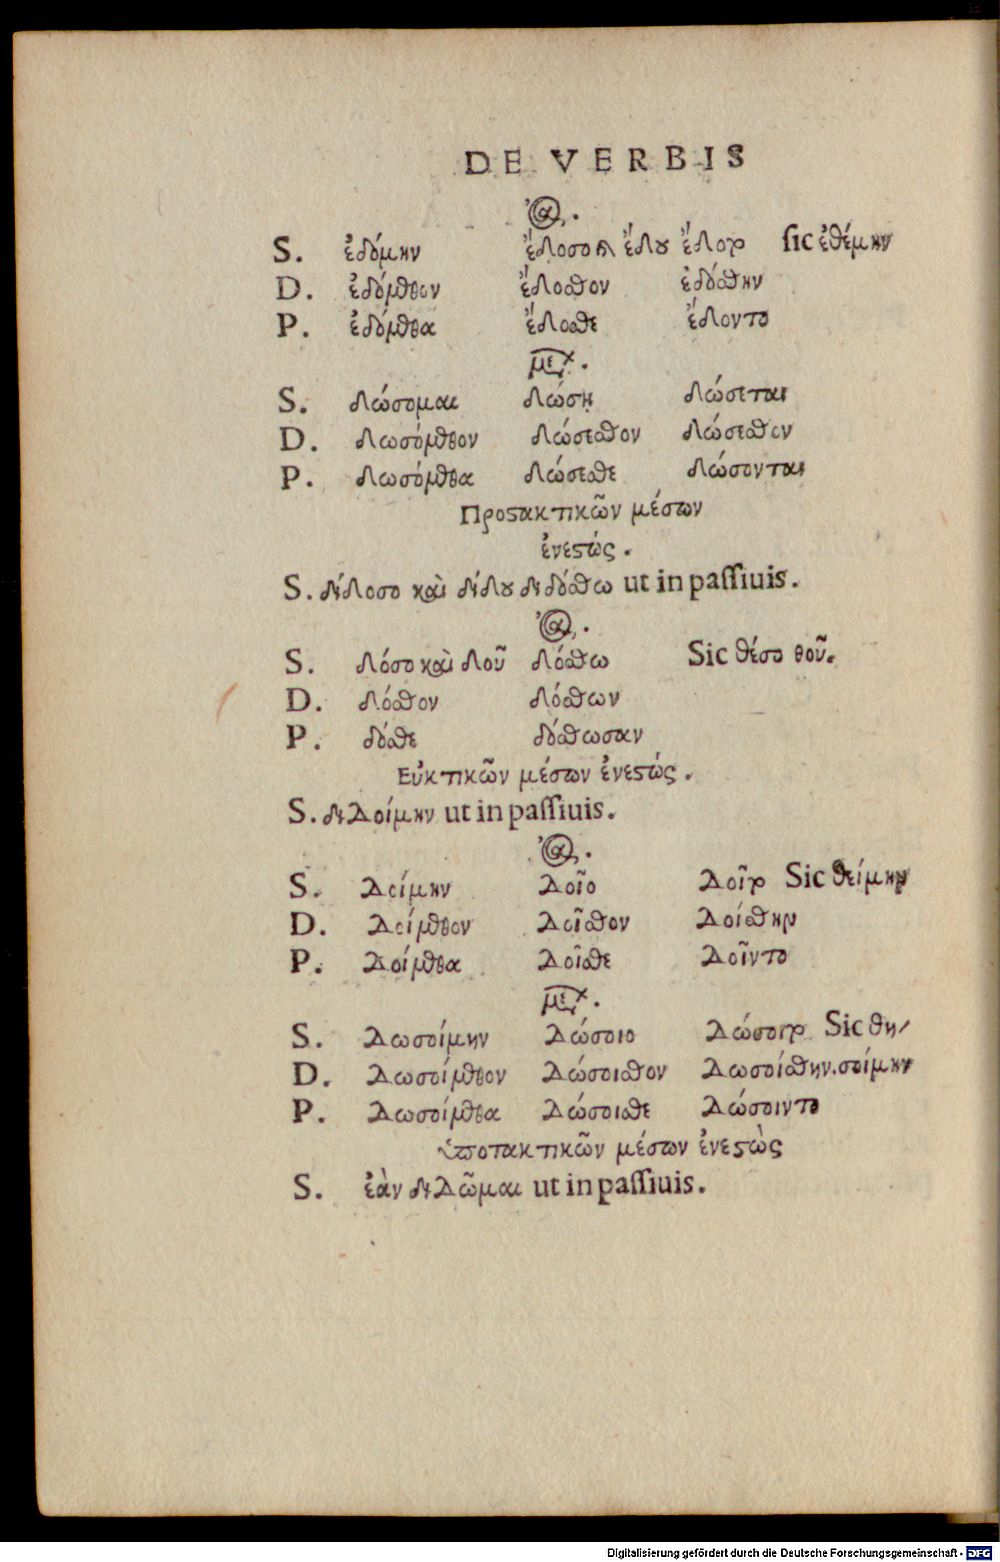 DE VERBIS
S. ἐδόμην ἔδοσο καὶ ἔδου ἔδοτο sic ἐθέμην
D. ἐδόμεθον ἔδοσθον ἐδόσθην
P. ἐδόμεθα ἔδοσθε ἔδοντο
μελ.
S. δώσομαι δώσῃ δώσεται
D. δωσόμεθον δώσεσθον δώσεσθον
P. δωσόμεθα δώσεσθε δώσονται
Προστακτικῶν μέσων
ἐνεστώς.
S. δίδοσο καὶ δίδου διδόσθω ut in passiuis.
S. δόσο καὶ δοῦ δόσθω Sic θέσο θοῦ.
D. δόσθον δόσθων
P. δόσθε δόσθωσαν
Εὐκτικῶν μέσων ἐνεστώς.
S. διδοίμην ut in passiuis.
S. δοίμην δοῖο δοῖτο Sic θείμην
D. δοίμεθον δοῖσθον δοίσθην
P. δοίμεθα δοῖσθε δοῖντο
μελ.
S. δωσοίμην δώσοιο δώσοιτο Sic θη/
D. δωσοίμεθον δώσοισθον δωσοίσθην. σοίμην
P. δωσοίμεθα δώσοισθε δώσοιντο
ὑποτακτικῶν μέσων ἐνεστὼς
S. ἐὰν διδῶμαι ut in passiuis.
Digitalisierung gefördert durch die Deutsche Forschungsgemeinschaft - DFG